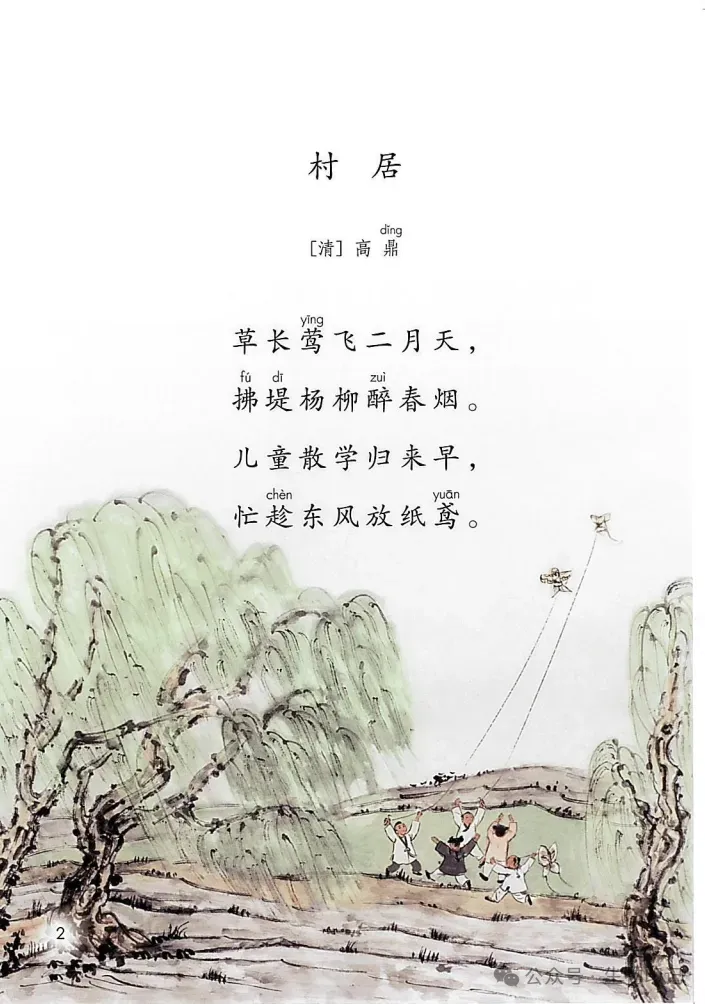 村居
dǐng
[清] 高鼎
yīng
草长莺飞二月天，
fú dī zuì
拂堤杨柳醉春烟。
儿童散学归来早，
chèn yuān
忙趁东风放纸鸢。
2
公众号 生